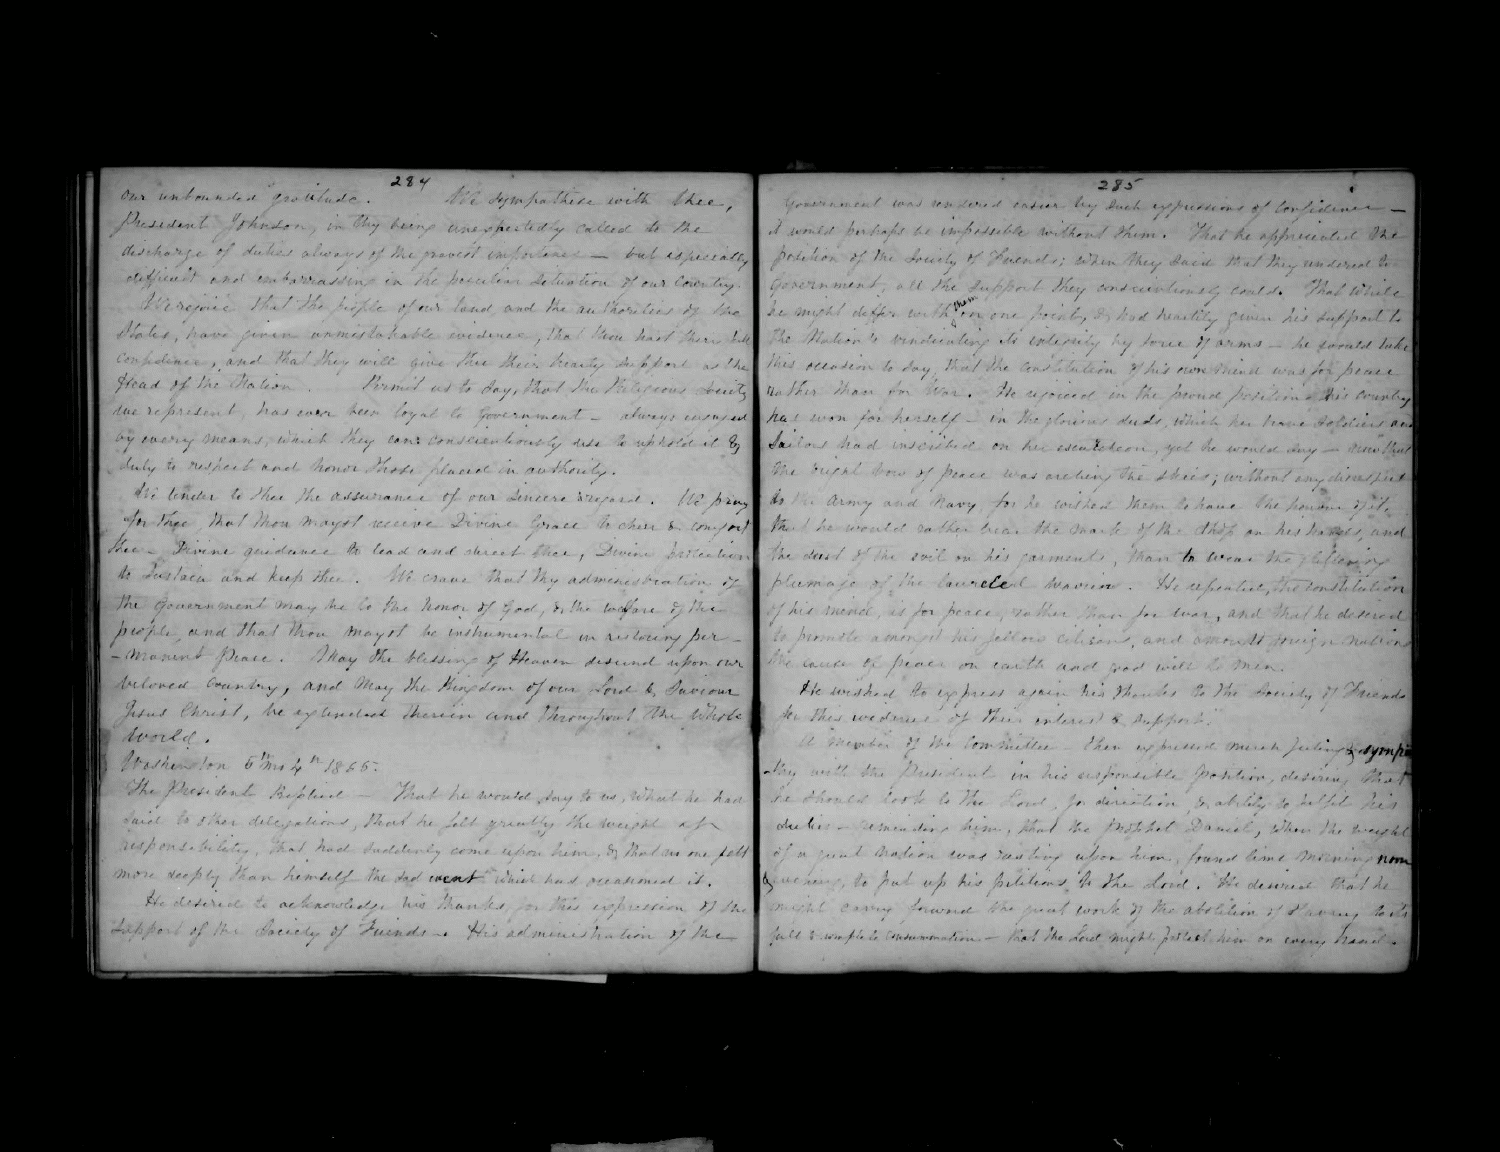 284
our unbounded gratitude. We sympathise with thee,
President Johnson, in thy being unexpectedly called to the
discharge of duties always of the gravest importance — but especially
difficult and embarrassing in the peculiar situation of our Country.
We rejoice that the people of our land and the authorities of the
States, have given unmistakable evidence, that thou hast their full
confidence, and that they will give thee their hearty support as the
Head of the Nation. Permit us to say, that the Religious Society
we represent, has ever been loyal to Government — always engaged
by every means, which they can conscientiously use to uphold it &
duly to respect and honor those placed in authority.
We tender to thee the assurance of our sincere regard. We pray
for thee, that thou mayst receive Divine Grace to cheer & comfort
thee — Divine guidance to lead and direct thee, Divine protection
to sustain and keep thee. We crave that thy administration of
the Government may be to the honor of God, & the welfare of the
people, and that thou mayst be instrumental in restoring per-
-manent Peace. May the blessing of Heaven descend upon our
beloved Country, and may the Kingdom of our Lord & Saviour
Jesus Christ, be extended therein and throughout the whole
world.
Washington 5th Mo 4th 1865.
The President Replied — That he would say to us, what he had
said to other delegations, that he felt greatly the weight of
responsibility, that had suddenly come upon him, & that no one felt
more deeply than himself the sad event which had occasioned it.
He desired to acknowledge his thanks for this expression of the
support of the Society of Friends. His administration of the
285
Government was rendered easier by such expressions of confidence —
it would perhaps be impossible without them. That he appreciated the
position of the Society of Friends; when they said that they rendered to
Government, all the support they conscientiously could. That while
he might differ with them on one point, & had heartily given his support to
the Nation in vindicating its integrity by force of arms — he would take
this occasion to say, that the constitution of his own mind was for peace
rather than for War. He rejoiced in the proud position his country
has won for herself — in the glorious deeds, which her brave soldiers and
sailors had inscribed on her escutcheon, yet he would say — now that
the bright bow of peace was arching the skies; without any disrespect
to the Army and Navy, for he wished them to have the honor of it,
that he would rather bear the mark of the shop on his hands, and
the dust of the soil on his garments, than to wear the glistening
plumage of the laureled warrior. He repeated, the constitution
of his mind, is for peace, rather than for war, and that he desired
to promote amongst his fellow citizens, and amongst foreign nations
the cause of peace on earth and good will to men.
He wished to express again his thanks to the Society of Friends
for this evidence of their interest & support.
A member of the Committee — then expressed much feeling & sympa
thy with the President in his responsible position, desiring that
he should look to the Lord, for direction, & ability to fulfil his
duties — reminding him, that the prophet Daniel, when the weight
of a great nation was resting upon him, found time morning noon
& evening, to put up his petitions to the Lord. He desired that he
might carry forward the great work of the abolition of Slavery to its
full & complete consummation — that the Lord might protect him on every hand.